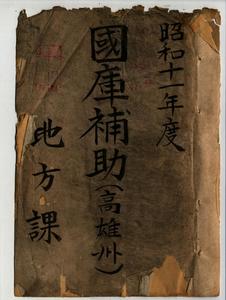 昭和十一年度
國庫補助(高雄州)
地方課